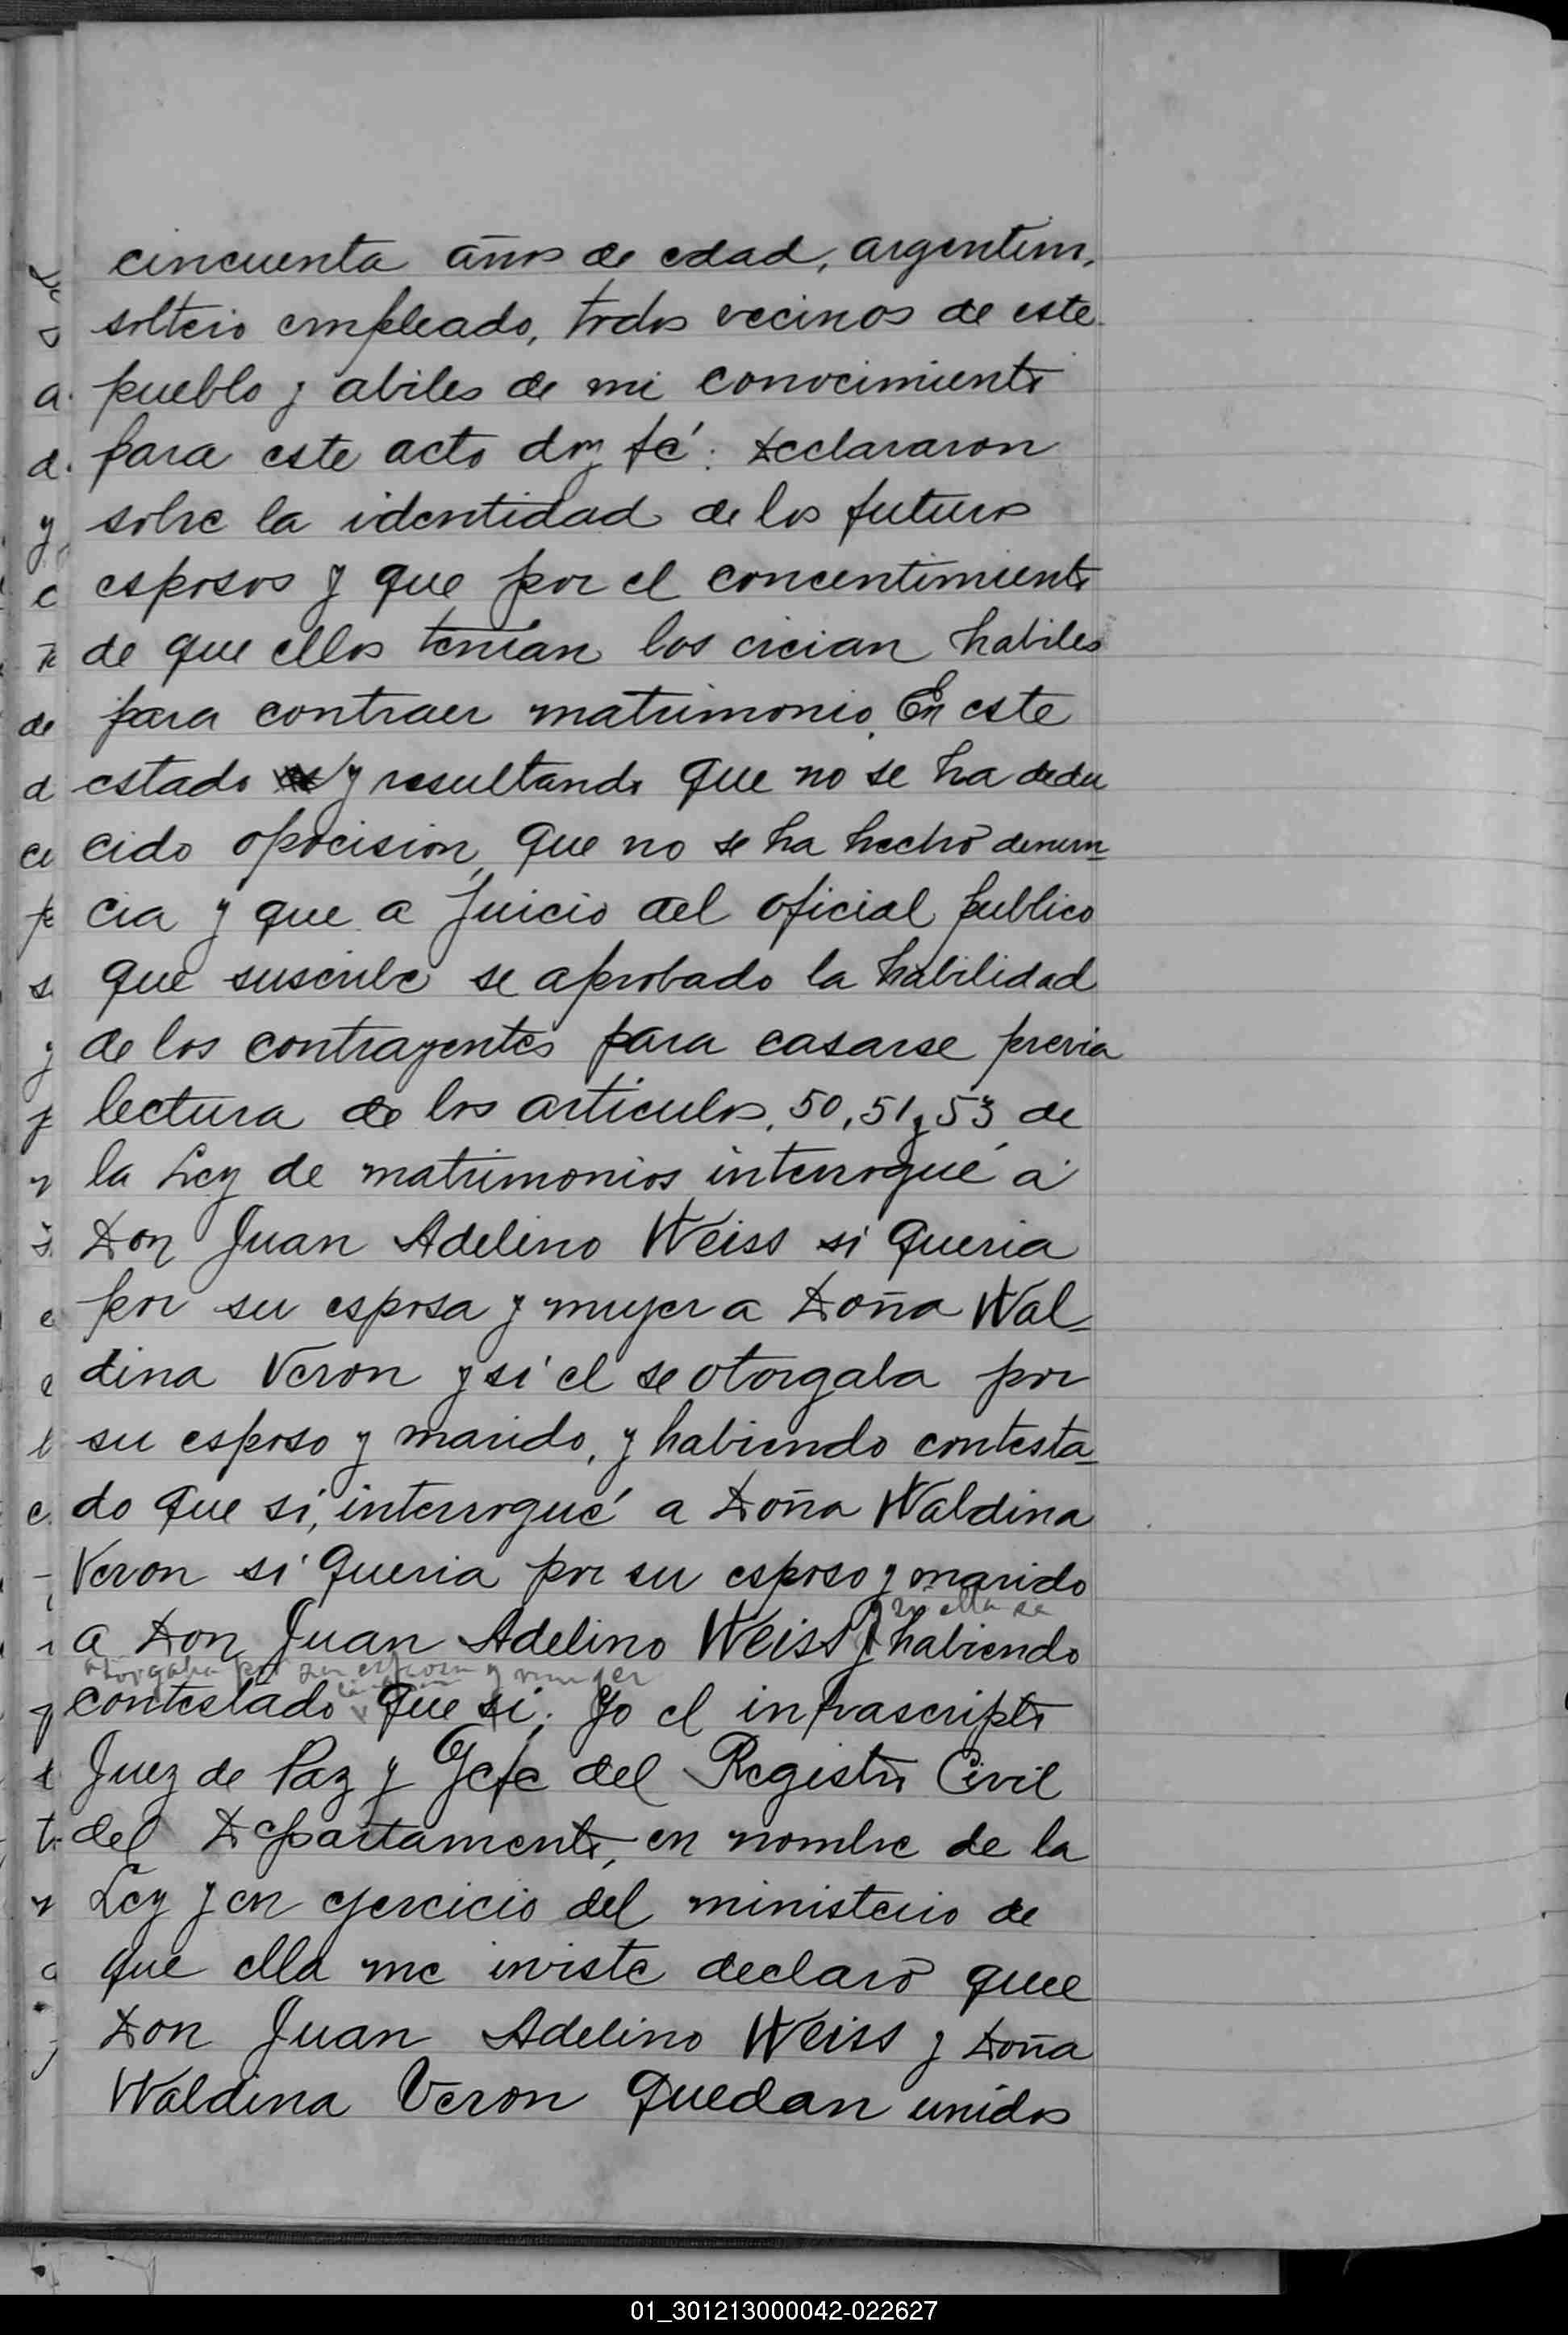 cincuenta años de edad, argentino,
soltero empleado, todos vecinos de este
pueblo y abiles de mi conocimiento
para este acto doy fé: Declararon
sobre la identidad de los futuros
esposos y que por el concentimiento
de que ellos tenían los creian habiles
para contraer matrimonio. En este
estado y resultando que no se ha dedu
cido opocision, que no se ha hecho denun-
cia y que a Juicio del oficial publico
que suscribe se aprobado la habilidad
de los contrayentes para casarse previa
lectura de los articulos, 50, 51 y 53 de
la Ley de matrimonios interrogué á
Don Juan Adelino Weiss si queria
por su esposa y mujer a Doña Wal-
dina Veron y si el se otorgaba por
su esposo y marido, y habiendo contesta-
do que si, interrogué a Doña Waldina
Veron si queria por su esposo y marido
y si ella se
a Don Juan Adelino Weiss y habiendo
otorgaba por su esposa y mujer
contestado que si; Yo el infrascripto
Juez de Paz y Gefe del Registro Civil
del Departamento, en nombre de la
Ley y en ejercicio del ministerio de
que ella me inviste declaro que
Don Juan Adelino Weiss y Doña
Waldina Veron quedan unidos
01_301213000042-022627